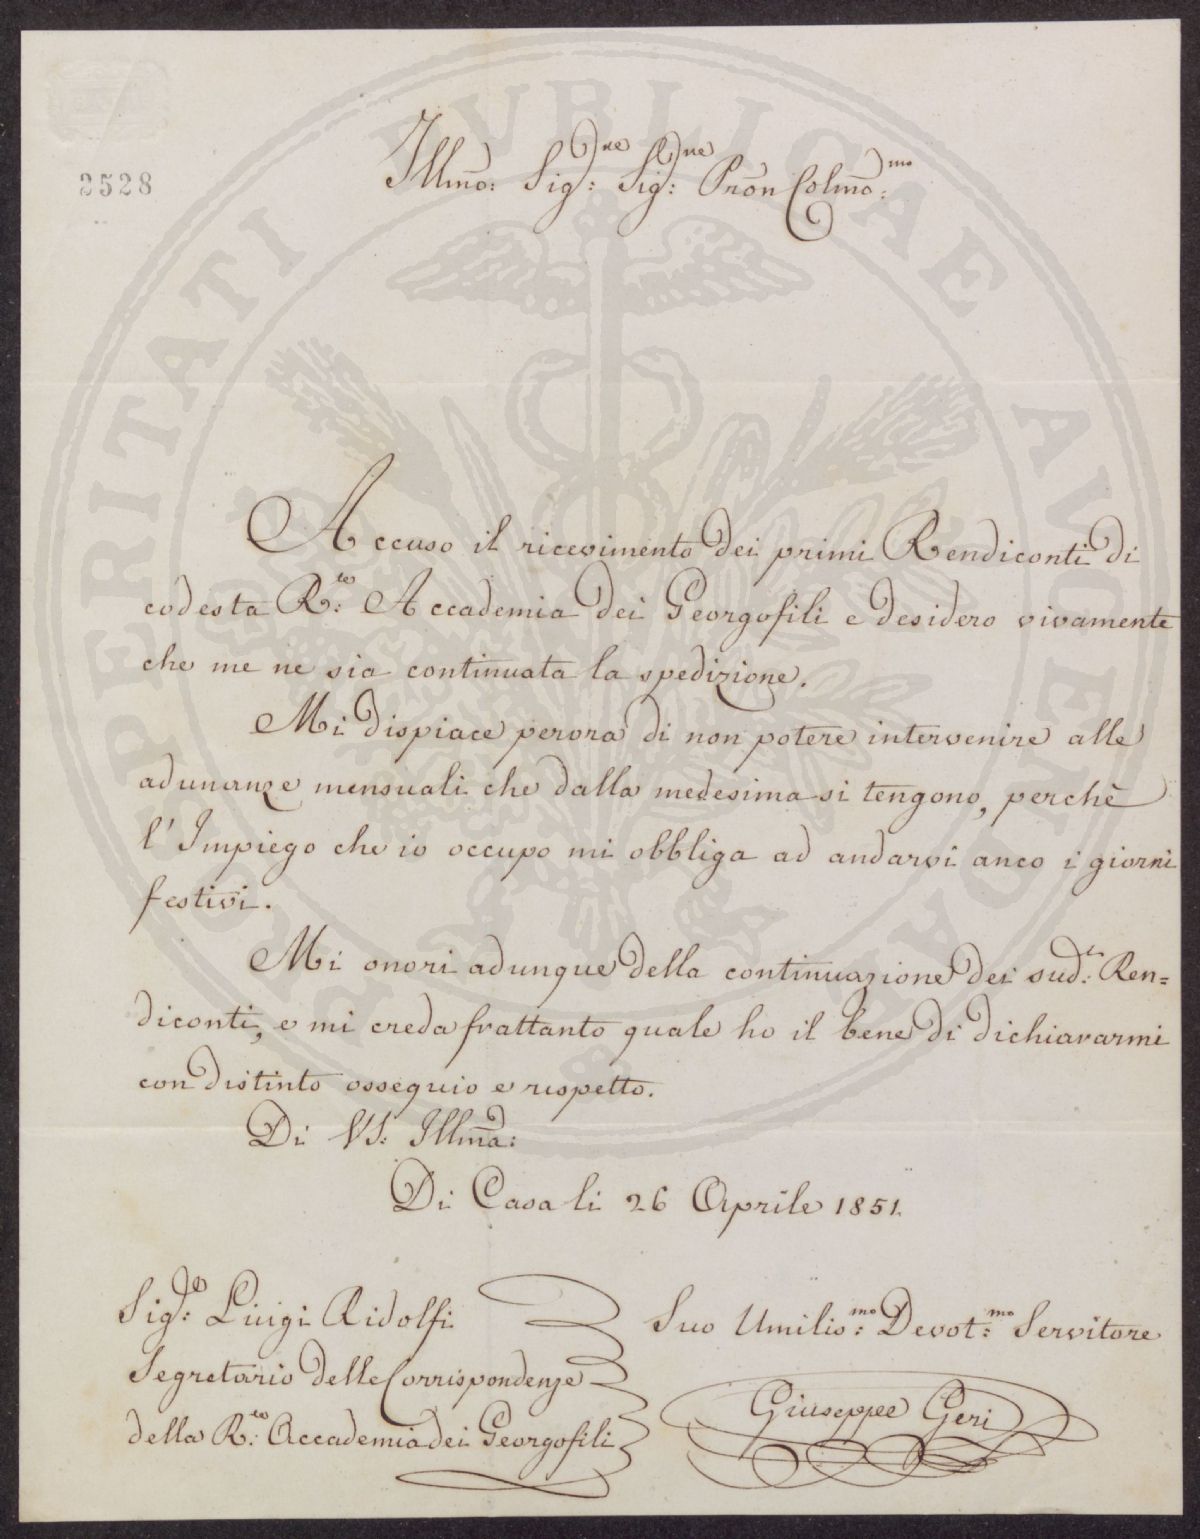 2528
Illmo: Sig:re Sig:re Pron Colmo:mo
Accuso il ricevimento dei primi Rendiconti di
codesta R:le Accademia dei Georgofili e desidero vivamente
che me ne sia continuata la spedizione.
Mi dispiace perora di non potere intervenire alle
adunanze mensuali che dalla medesima si tengono, perchè
l'Impiego che io occupo mi obbliga ad andarvi anco i giorni
festivi.
Mi onori adunque della continuazione dei sud:ti Ren=
diconti, e mi creda frattanto quale ho il bene di dichiararmi
con distinto ossequio e rispetto.
Di VS: Illma:
Di Casa li 26 Aprile 1851.
Sig:e Luigi Ridolfi
Segretario delle Corrispondenze
della R:le Accademia dei Georgofili
Suo Umilis:mo Devot:mo Servitore
Giuseppe Geri
PROSPERITATI PVBLICAE AVGENDAE